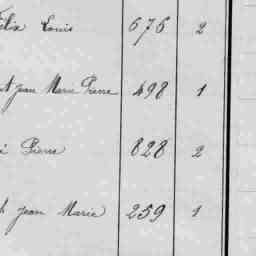 Félix Louis 676 2
t Jean Marie Pierre 498 1
é Pierre 828 2
h Jean Marie 259 1